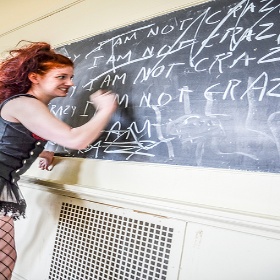 I AM NOT CRAZY
I AM NOT CRAZY
I AM NOT CRAZ
AZY I AM NOT CRAZ
I AM
CRAZY